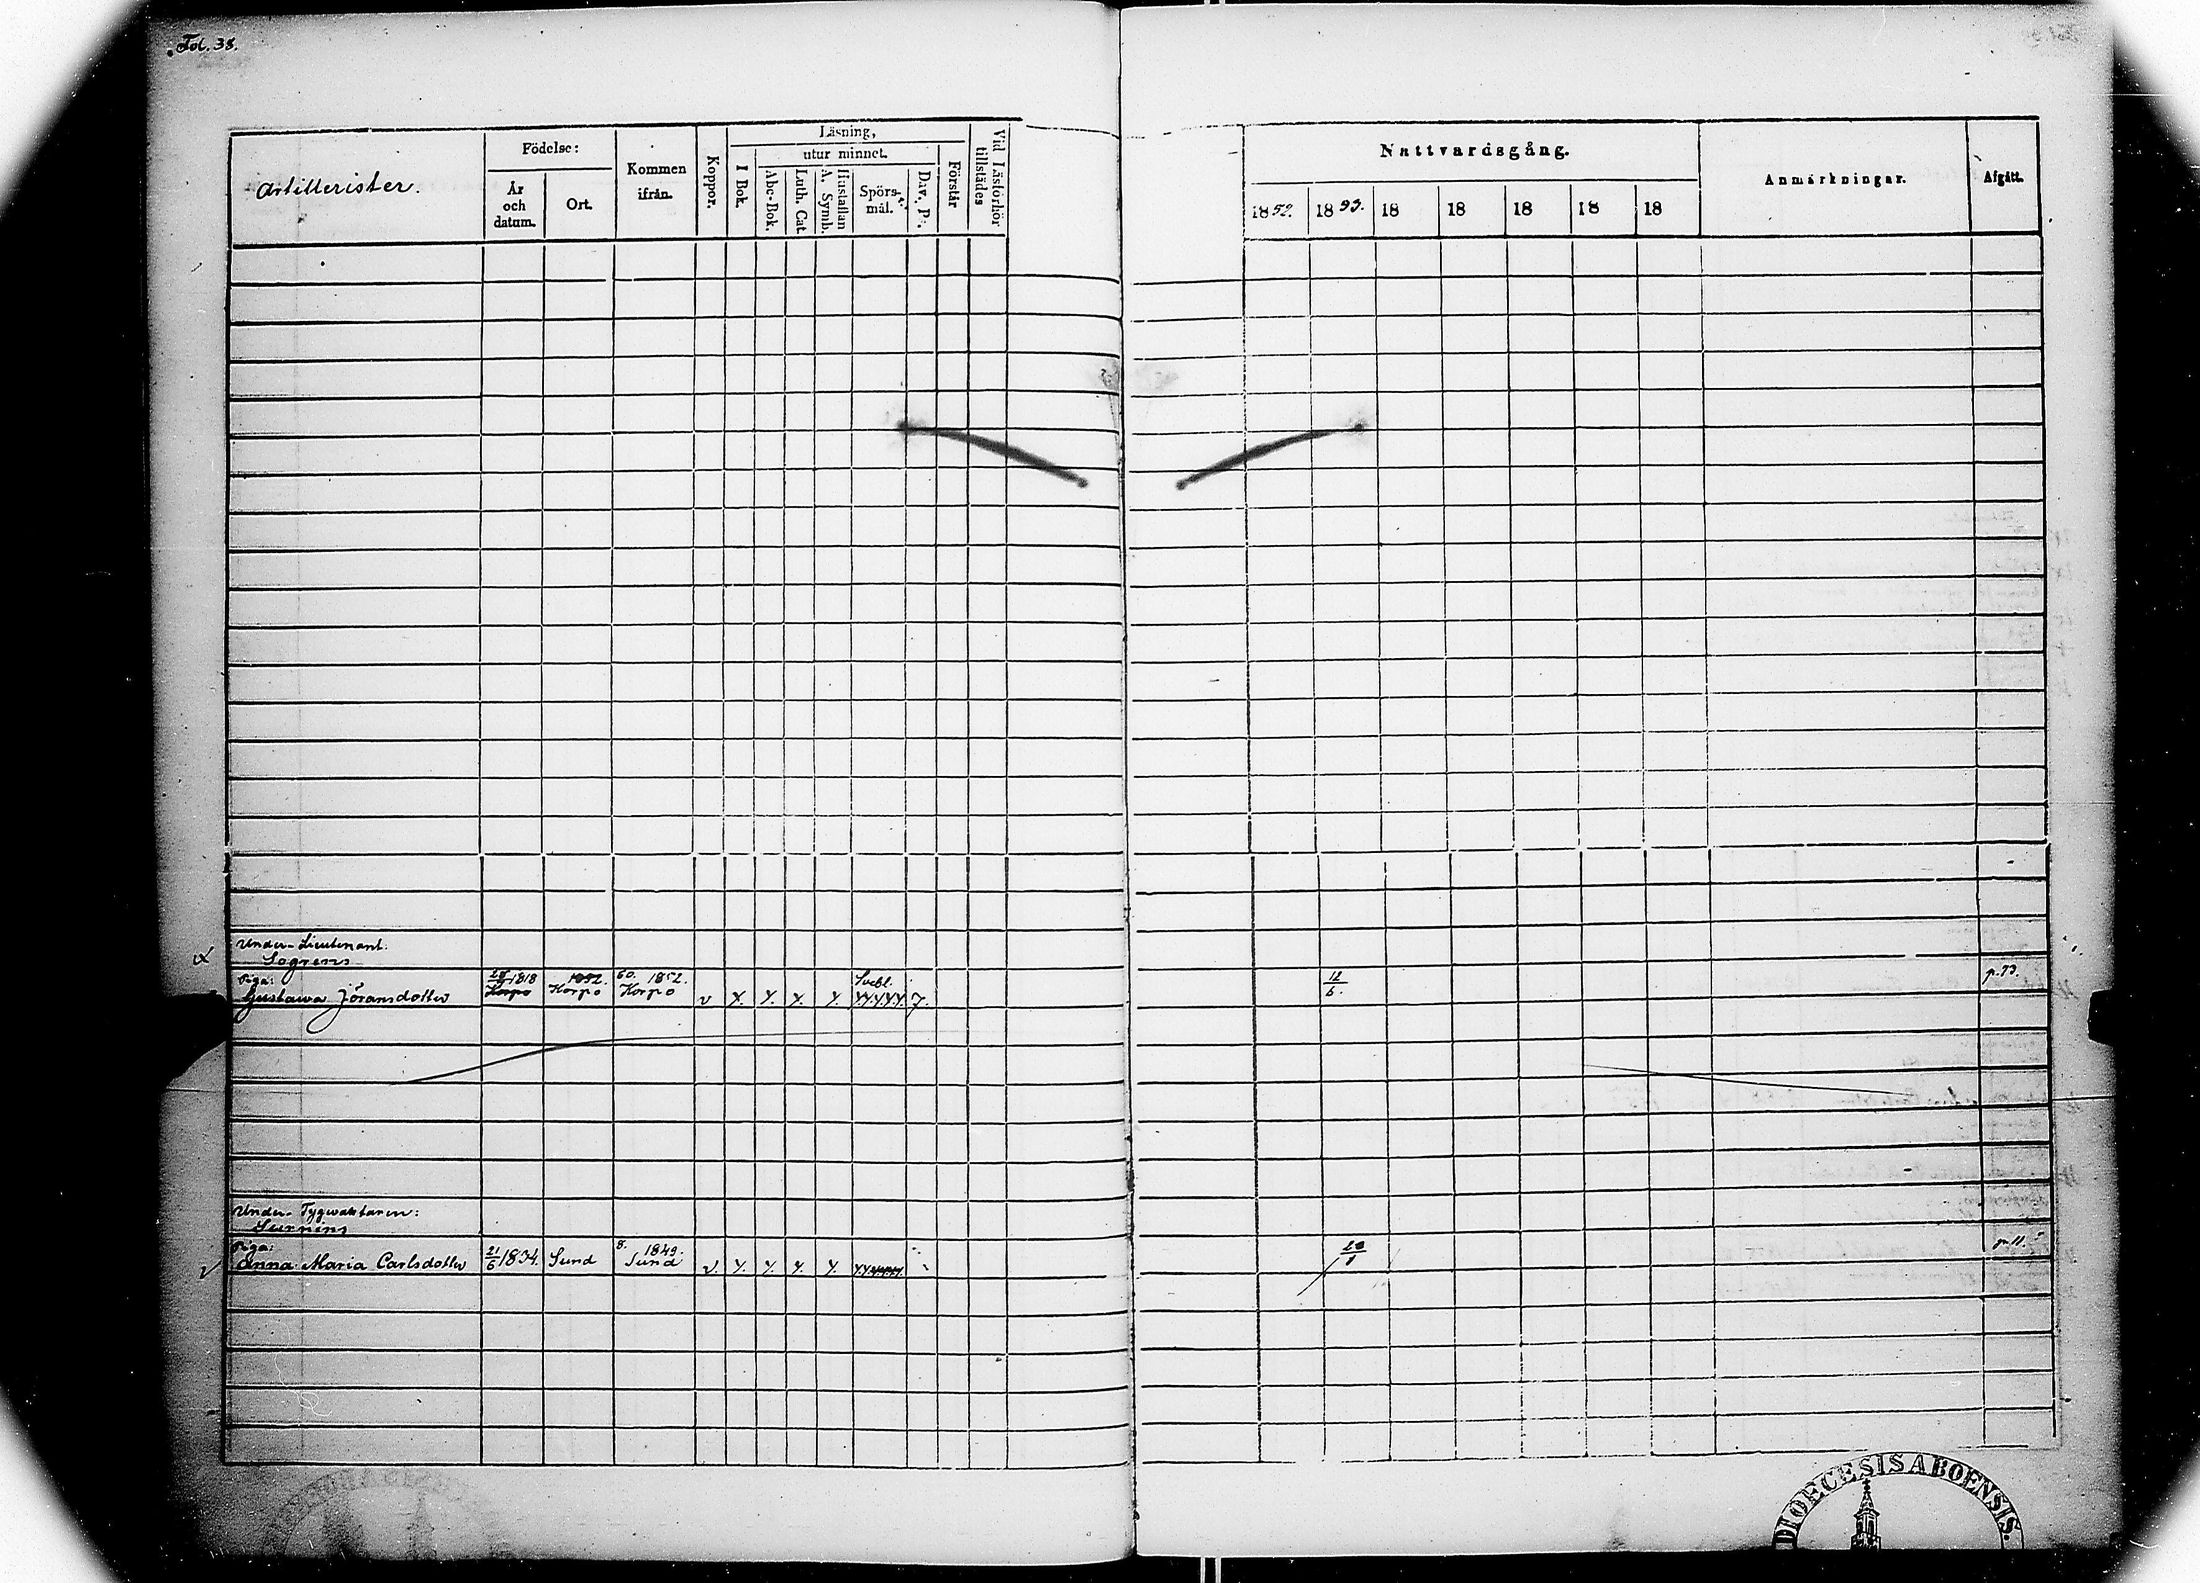 Fol. 38.
Artillerister.
Födelse:
År och datum.
Ort.
Kommen ifrån.
Koppor.
Läsning,
I Bok.
utur minnet.
Abc-Bok.
Luth. Cat.
Hustaflan A. Symb.
Spörsmål.
Dav. Ps.
Förstår
Vid Läsförhör tillstädes
Nattvardsgång.
1852. 1853. 18 18 18 18 18
Anmärkningar.
Afgått.
Under-Lieutenant:
Piga: 1818 1852. 60. 1852. Svebl. 12/6. p. 73.
Gustava Jöransdotter Korpo Korpo Korpo v
Under-Tygvaktaren:
Piga: 21/6 1834. Sund 8. 1849. p. 11.
Anna Maria Carlsdotter Sund v.
DIOECESIS ABOENSIS.